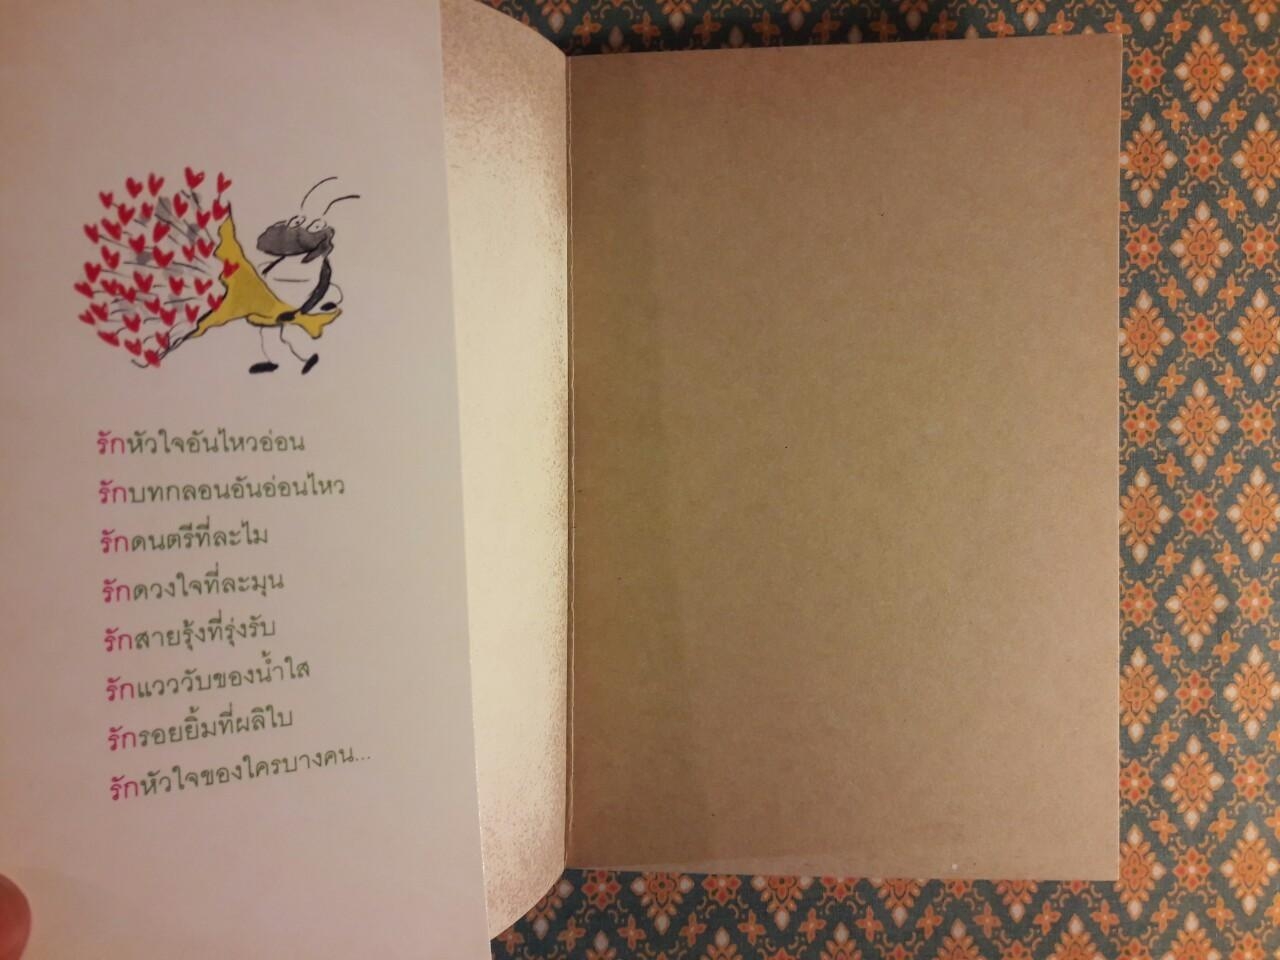 รักหัวใจอันไหวอ่อน
รักบทกลอนอันอ่อนไหว
รักดนตรีที่ละไม
รักดวงใจที่ละมุน
รักสายรุ้งที่รุ่งรับ
รักแวววับของน้ำใส
รักรอยยิ้มที่ผลิใบ
รักหัวใจของใครบางคน...